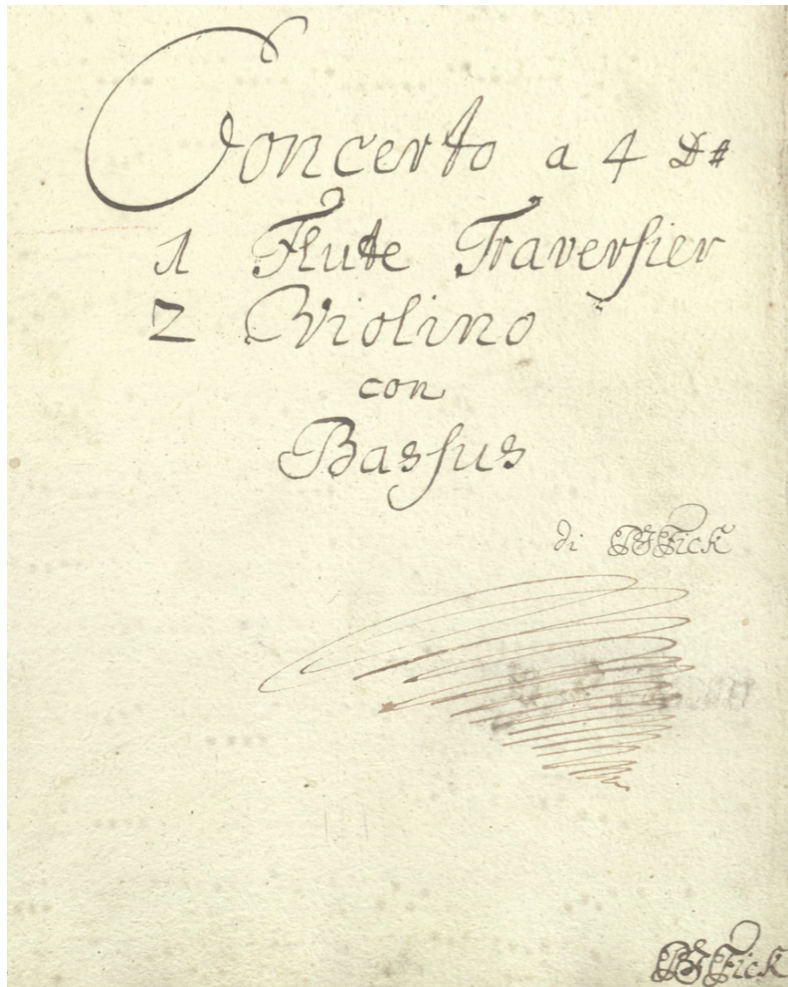 Concerto a 4 D#
1 Flute Traversier
2 Violino
con
Bassus
di PJFick
PJFick